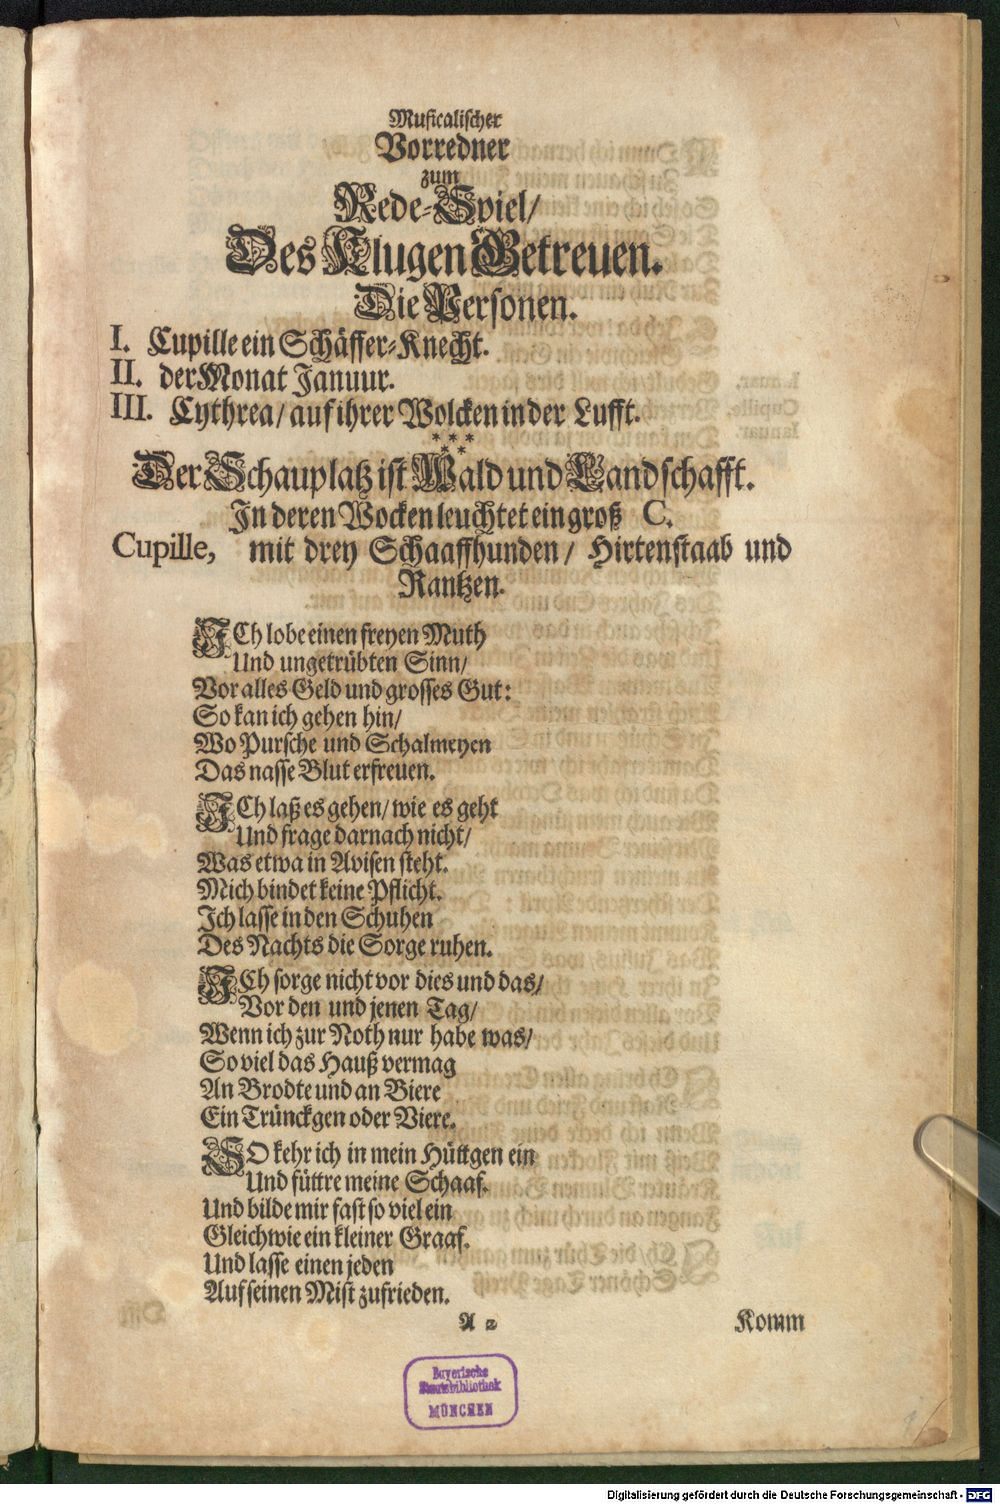 Musicalischer
Vorredner
zum
Rede-Spiel/
Des Klugen Getreuen.
Die Personen.
I. Cupille ein Schäffer-Knecht.
II. der Monat Januur.
III. Cythrea/ auf ihrer Wolcken in der Lufft.
* * *
* *
Der Schauplatz ist Wald und Landschafft.
In deren Wocken leuchtet ein groß C.
Cupille, mit drey Schaaffhunden/ Hirtenstaab und
Rantzen.
ICh lobe einen freyen Muth
Und ungetrübten Sinn/
Vor alles Geld und grosses Gut:
So kan ich gehen hin/
Wo Pursche und Schalmeyen
Das nasse Blut erfreuen.
ICh laß es gehen/ wie es geht
Und frage darnach nicht/
Was etwa in Avisen steht.
Mich bindet keine Pflicht.
Ich lasse in den Schuhen
Des Nachts die Sorge ruhen.
ICh sorge nicht vor dies und das/
Vor den und jenen Tag/
Wenn ich zur Noth nur habe was/
So viel das Hauß vermag
An Brodte und an Biere
Ein Trünckgen oder Viere.
SO kehr ich in mein Hüttgen ein
Und füttre meine Schaaf.
Und bilde mir fast so viel ein
Gleichwie ein kleiner Graaf.
Und lasse einen jeden
Auf seinen Mist zufrieden.
A 2
Komm
Bayerische
Staatsbibliothek
MÜNCHEN
Digitalisierung gefördert durch die Deutsche Forschungsgemeinschaft - DFG